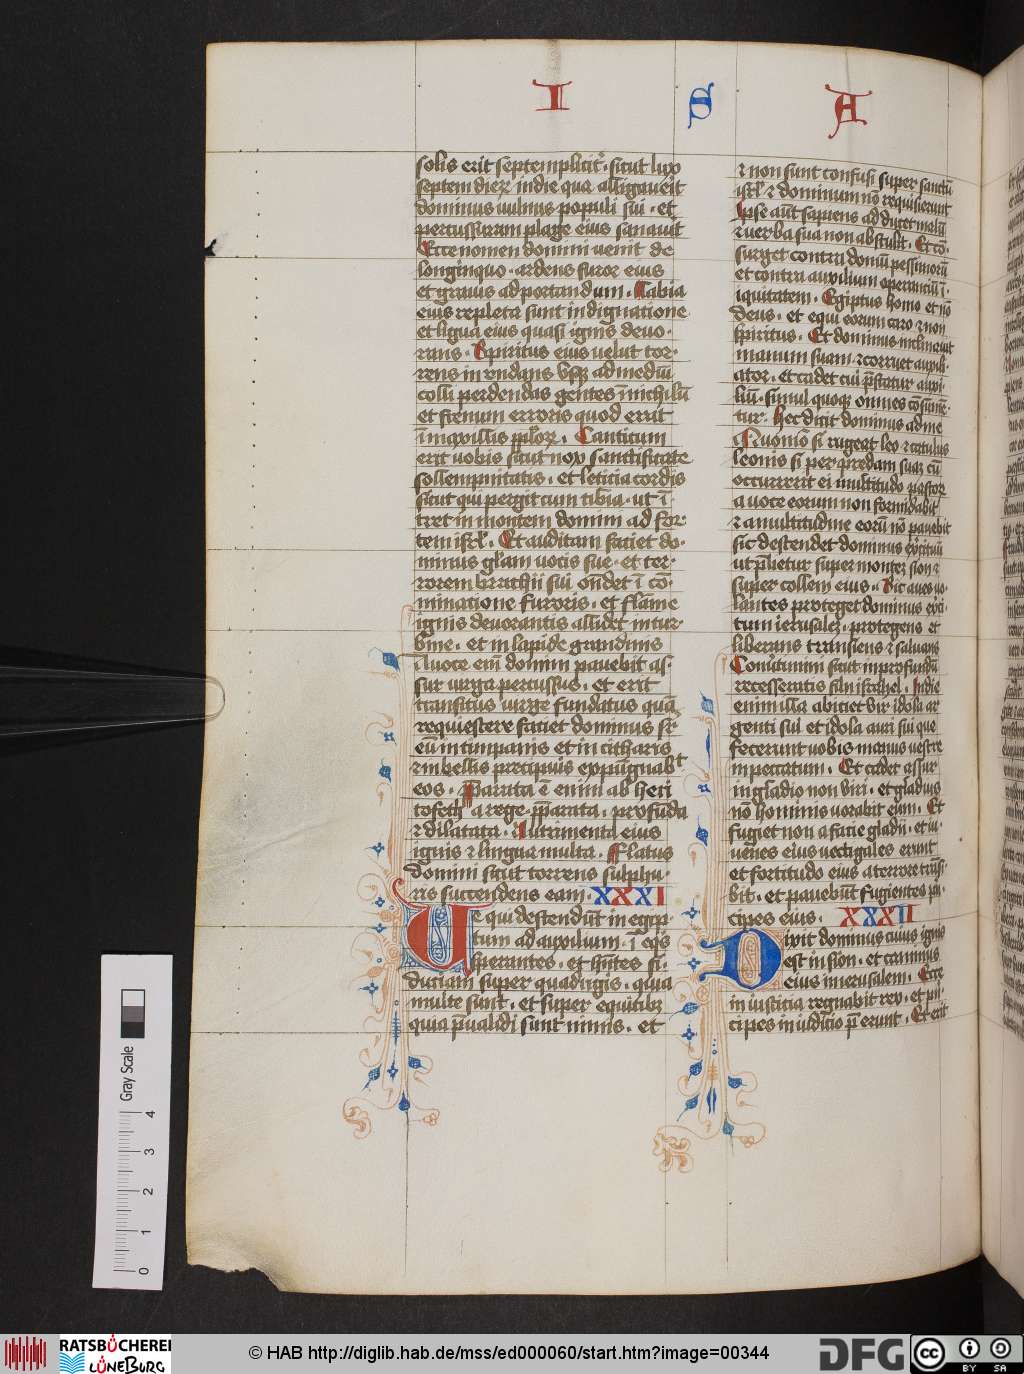 I S A
solis erit septempliciter · sicut lux
septem dierꝝ in die qua alligauerit
dominus uulnus populi sui · et
percussuram plage eius sanauit
Ecce nomen domini uenit de
longinquo · ardens furor eius
et grauis ad portandum · Labia
eius repleta sunt indignatione
et ligua eius quasi ignis deuo-
rans · Spiritus eius uelut tor-
rens inundans vsqꝫ ad mediū
colli perdendas gentes ī nichilū
et frenum erroris quod erat
ī maxillis pp̄lorꝝ · Canticum
erit uobis sicut nox sanctificate
sollempnitatis · et leticia cordis
sicut qui pergit cum tibia · ut ī-
tret in montem domini ad for-
tem isrl̄ · Et auditam faciet do-
minus gl̄am uocis sue · et ter-
rorem brachii sui on̄det ī co-
minatione furoris · et flāme
ignis deuorantis allidet in tur-
bine · et in lapide grandinis
A uoce em̄ domini pauebit as-
sur uirga percussus · et erit
transitus uirge fundatus quā
requiescere faciet dominus sr̄
eū in timpanis et in citharis
⁊ in bellis precipuis expūgnabᵗ
eos · Parata ē enim ab heri
tofeth a rege p̄parata · profūda
⁊ dilatata · Nutrimenta eius
ignis ⁊ lingua multa · Flatus
domini sicut torrens sulphu-
ris succendens eam · XXXI
Ue qui descendūt in egip-
tum ad auxilium · ī eqis
sperantes · et hn̄tes fi-
duciam super quadrigis · quia
multe sunt · et super equitibꝫ
quia p̄ualidi sunt nimis · et
⁊ non sunt confusi super sanctū
isrl̄ ⁊ dominum nō requisierunt
Ipse aūt sapiens adduxit malū
⁊ uerba sua non abstulit · Et cō-
surget contra domū pessimorū
et contra auxilium operantiū ī-
iquitatem · Egiptus homo et nō
deus · et equi eorum caro ⁊ non
spiritus · Et dominus inclinauit
manum suam · ⁊ corruet auxili-
ator · et cadet cui p̄statur auxi-
liū · simul quoqꝫ omnes cōsumē-
tur · Hec dicit dominus ad me
Quomō si rugeat leo ⁊ catulus
leonis si per predam suaꝫ cū
occurrerit ei multitudo pastorꝝ
a uoce eorum non formidabit
⁊ a multitudine eorū nō pauebit
sic descendet dominus exercituū
ut p̄lietur super monteꝫ sion ⁊
super collem eius · Sic aues uo-
lantes proteget dominus exerci-
tuum ierusaleꝫ · protegens et
liberans transiens ⁊ saluans
Conuertimini sicut in profundū
recesseratis filii israhel · In die
enim illa abiciet vir idola ar-
genti sui et idola auri sui que
fecerunt uobis manus uestre
in peccatum · Et cadet assur
in gladio non viri · et gladius
nō hominis uorabit eum · Et
fugiet non a facie gladii · et iu-
uenes eius uectigales erunt
et fortitudo eius a terrore trāsi-
bit · et pauebūt fugientes prī-
cipes eius · XXXII
Dixit dominus cuius ignis
est in sion · et caminus
eius in ierusalem · Ecce
in iusticia regnabit rex · et prī-
cipes in iudicio p̄erunt · Et erit
Gray Scale
4
3
2
1
0
RATSBÜCHEREI
LÜNEBURG
© HAB http://diglib.hab.de/mss/ed000060/start.htm?image=00344
DFG
cc BY SA